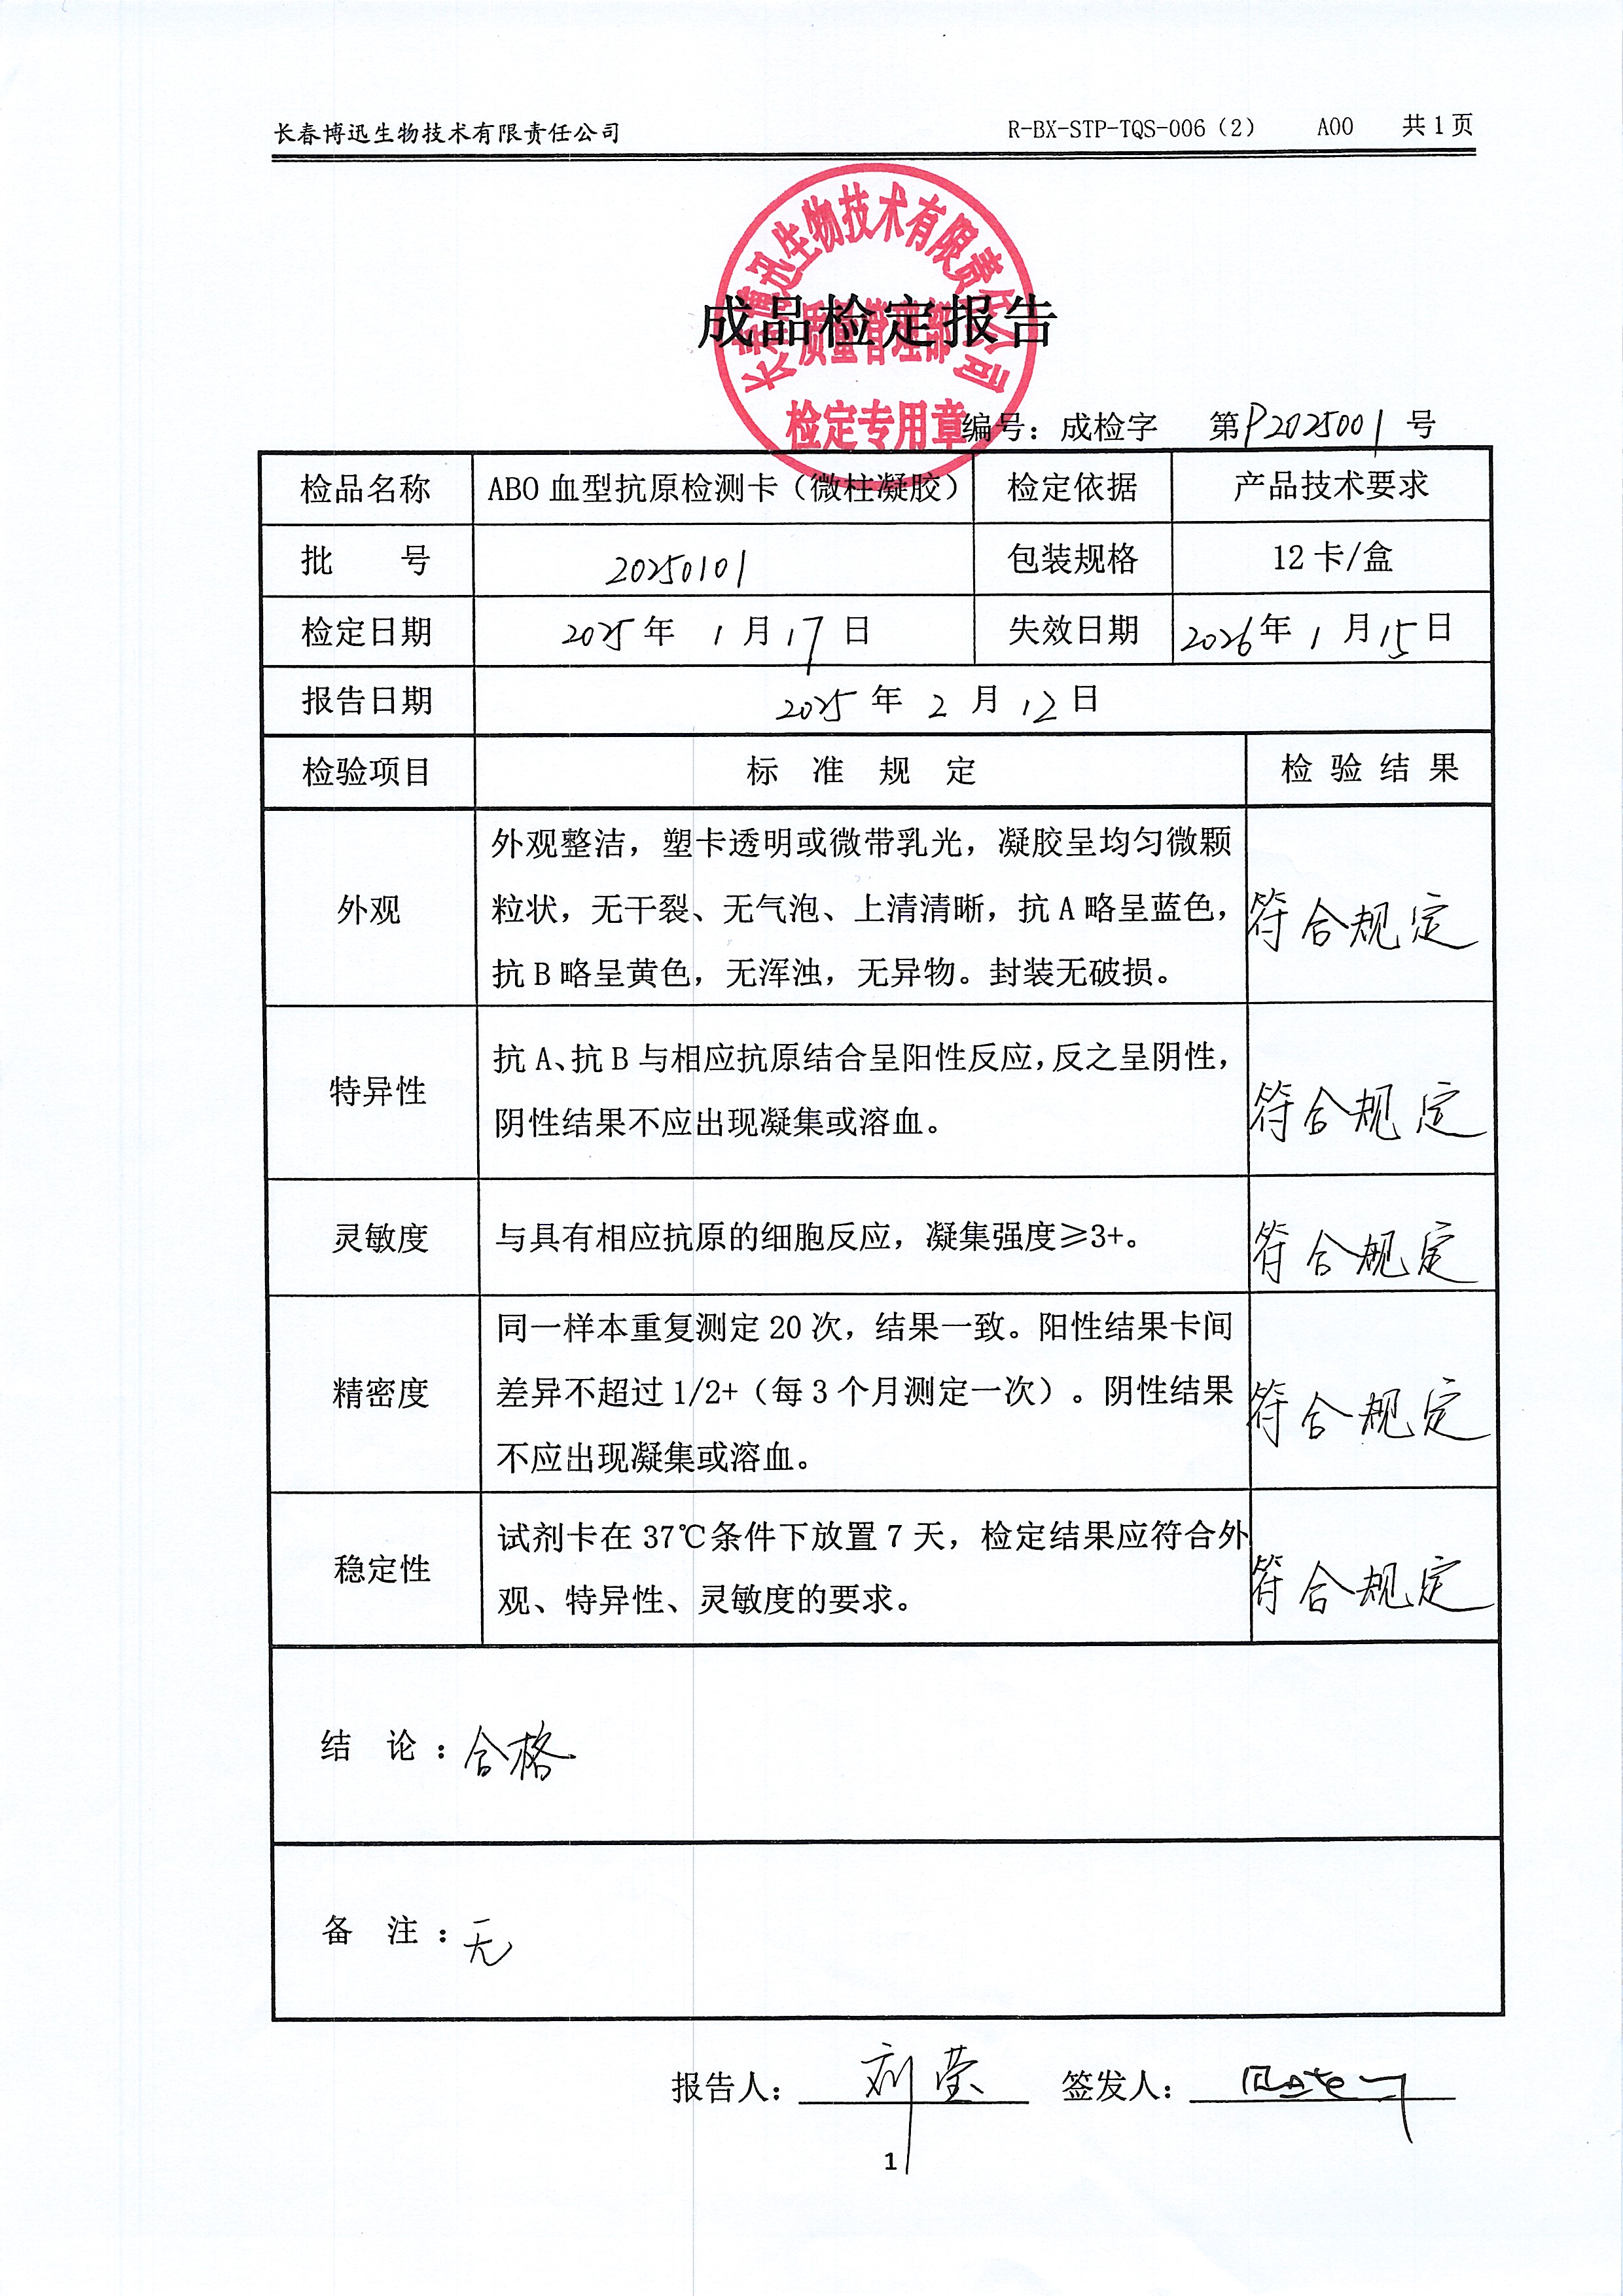 长春博迅生物技术有限责任公司 R-BX-STP-TQS-006（2） A00 共1页
长春博迅生物技术有限责任公司
质量管理部
检定专用章
成品检定报告
编号：成检字 第P2025001号
检品名称 ABO血型抗原检测卡（微柱凝胶） 检定依据 产品技术要求
批 号 20250101 包装规格 12卡/盒
检定日期 2025年1月17日 失效日期 2026年1月15日
报告日期 2025年2月12日
检验项目 标准规定 检验结果
外观整洁，塑卡透明或微带乳光，凝胶呈均匀微颗
外观 粒状，无干裂、无气泡、上清清晰，抗A略呈蓝色， 符合规定
抗B略呈黄色，无浑浊，无异物。封装无破损。
抗A、抗B与相应抗原结合呈阳性反应，反之呈阴性，
特异性 符合规定
阴性结果不应出现凝集或溶血。
灵敏度 与具有相应抗原的细胞反应，凝集强度≥3+。 符合规定
同一样本重复测定20次，结果一致。阳性结果卡间
精密度 差异不超过1/2+（每3个月测定一次）。阴性结果 符合规定
不应出现凝集或溶血。
试剂卡在37℃条件下放置7天，检定结果应符合外
稳定性 符合规定
观、特异性、灵敏度的要求。
结 论：合格
备 注：无
报告人：刘莹 签发人：
1